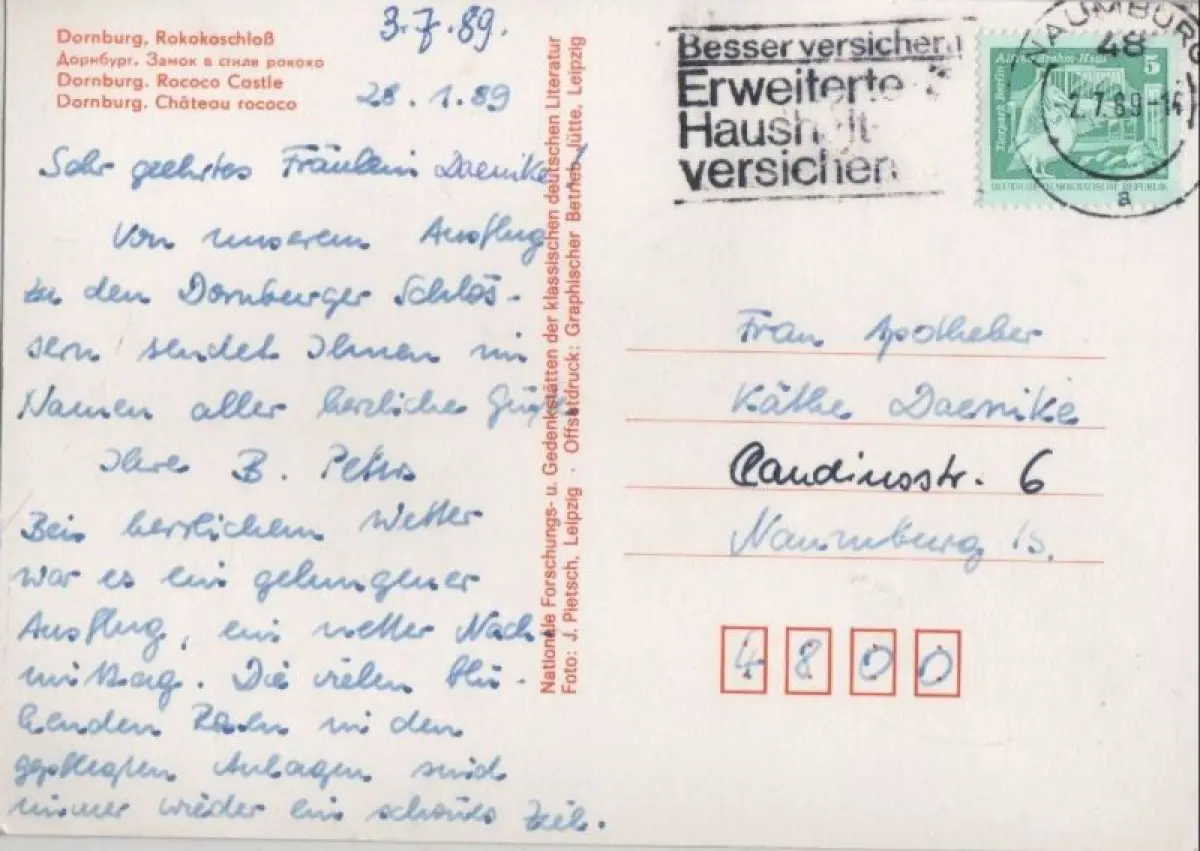 Dornburg, Rokokoschloß
Дорнбург. Замок в стиле рококо
Dornburg. Rococo Castle
Dornburg. Château rococo
3.7.89.
28.1.89
Sehr geehrtes Fräulein Daenike!
Von unserem Ausflug
zu den Dornburger Schlös-
sern sendet Ihnen im
Namen aller herzliche Grüße
Ihre B. Peters
Bei herrlichem Wetter
war es ein gelungener
Ausflug, ein netter Nach
mittag. Die vielen blü-
henden in den
gepflegten Anlagen sind
immer wieder ein schönes Ziel.
Nationale Forschungs- u. Gedenkstätten der klassischen deutschen Literatur
Foto: J. Pietsch, Leipzig · Offsetdruck: Graphischer Betrieb Jütte, Leipzig
Besser versichern
Erweiterte
Haushalt-
versicherung
NAUMBURG
48
2.7.89-14
a
Tierpark Berlin
Alfred-Brehm-Haus
5
DEUTSCHE DEMOKRATISCHE REPUBLIK
Frau Apotheker
Käthe Daenike
Claudiusstr. 6
Naumburg
4800